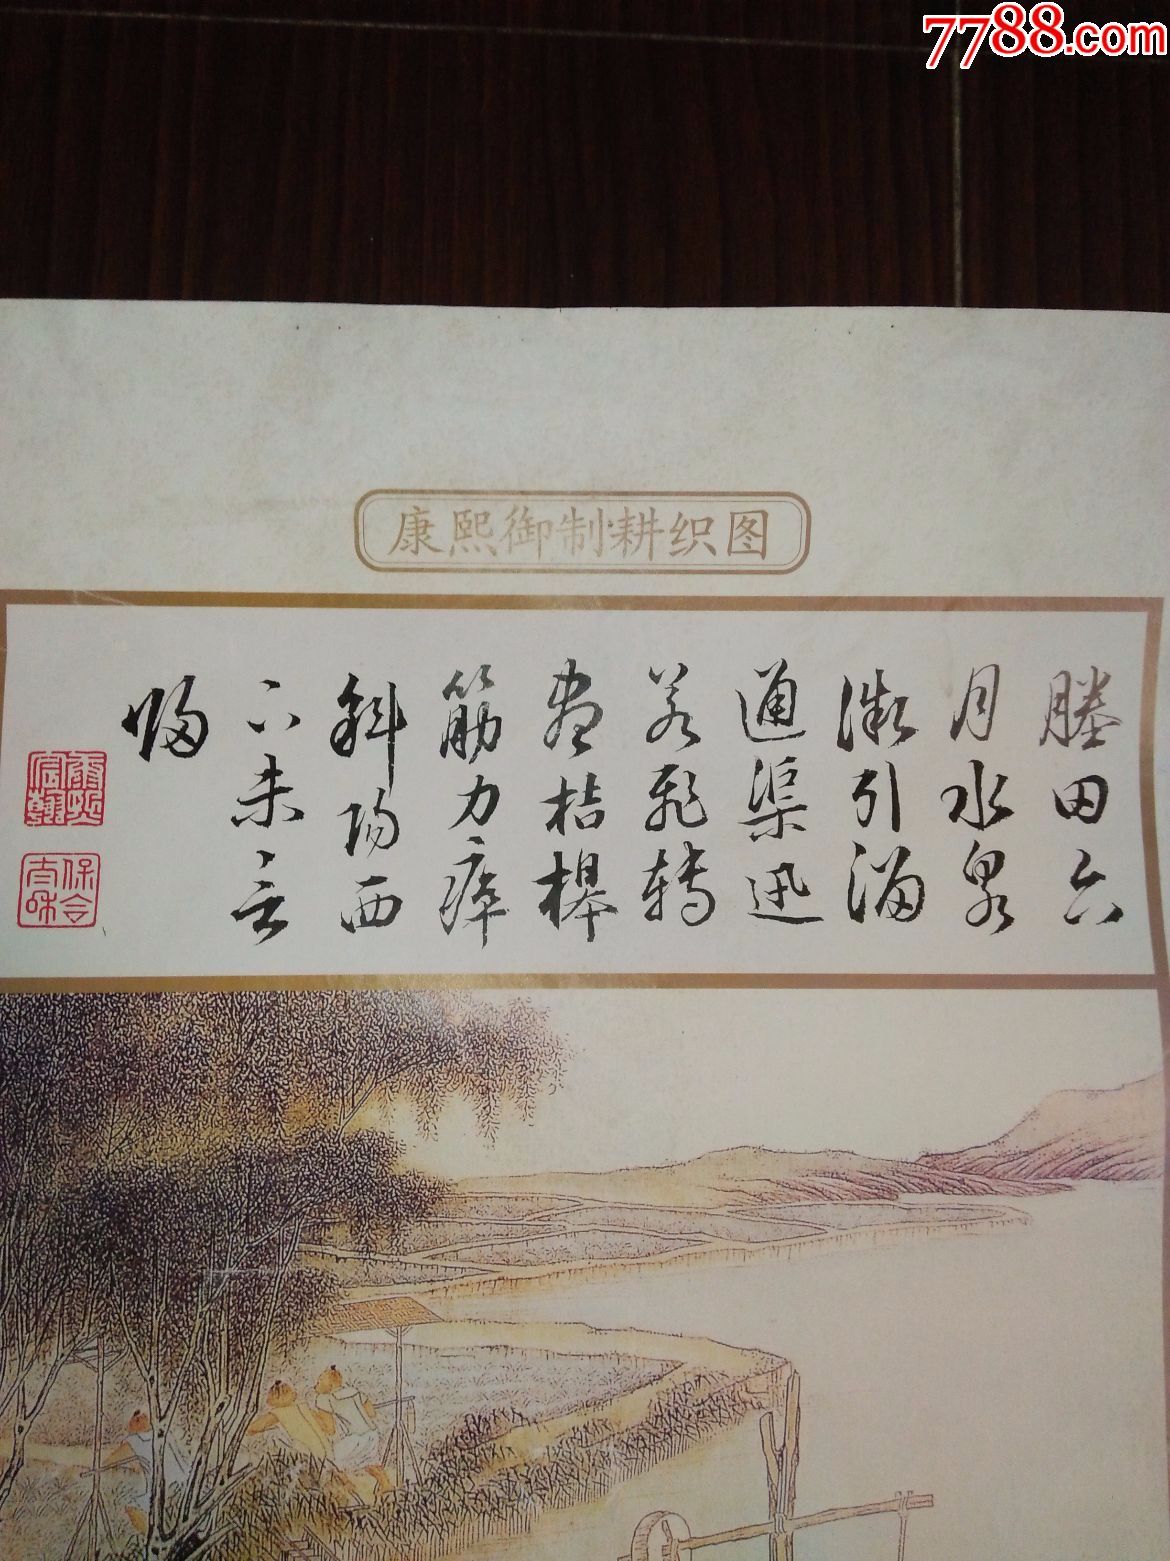 7788.com
康熙御制耕织图
塍田六
月水泉
微引溜
通渠迅
若飛轉
盡桔槔
筋力瘁
斜陽西
下未言
歸
康熙宸翰
保合太和